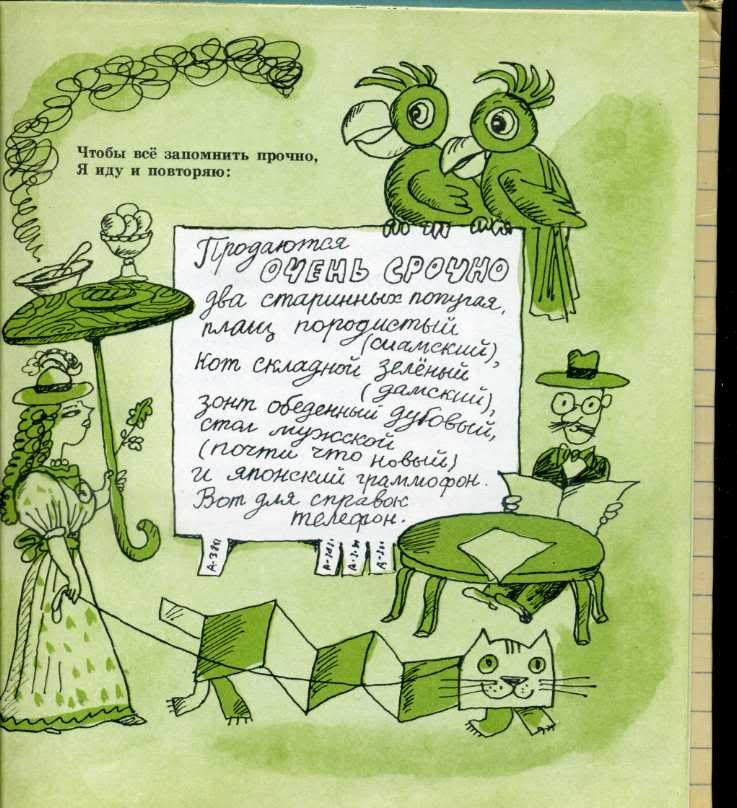 Чтобы всё запомнить прочно,
Я иду и повторяю:
Продаются
ОЧЕНЬ СРОЧНО
два старинных попугая,
плащ породистый
(сиамский),
Кот складной зелёный
(дамский),
зонт обеденный дубовый,
стол мужской
(почти что новый)
И японский граммофон.
Вот для справок
телефон.